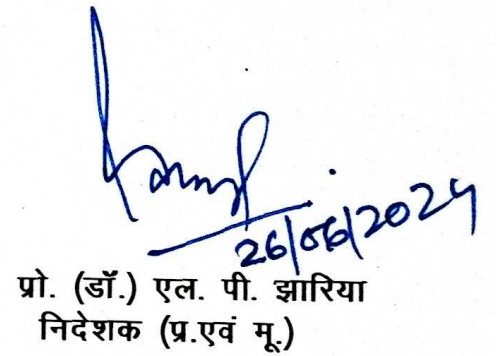 26/06/2024
प्रो. (डॉ.) एल. पी. झारिया
निदेशक (प्र.एवं मू.)